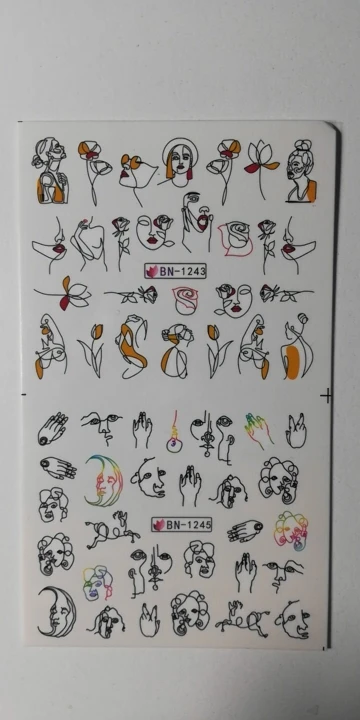 BN-1243
BN-1245